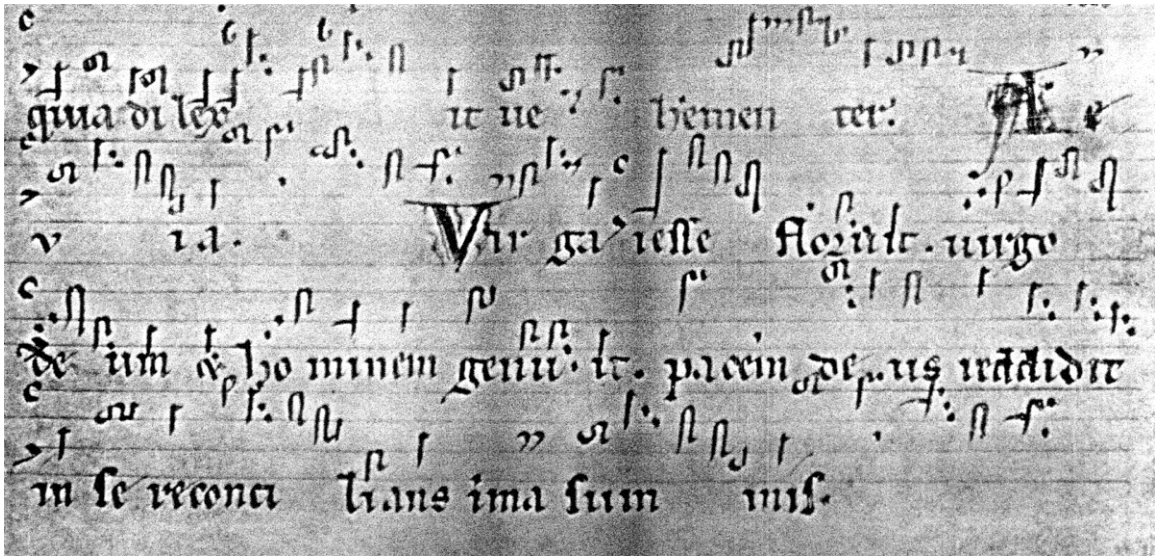 quia di lex it ue hemen ter. A e
v ia. Vir ga iesse floruit. uirgo
de um & ho minem genu it. pacem de us reddidit
in se reconci lians ima sum mis.